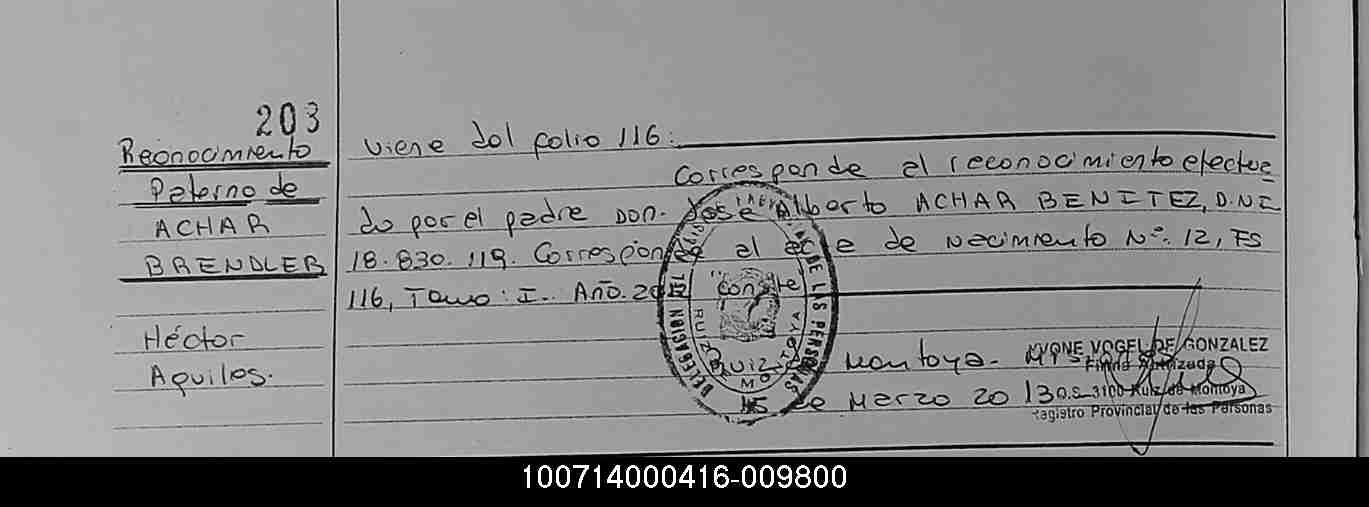 203
Reconocimiento
Paterno de
ACHAR
BRENDLER
Héctor
Aquiles.
Viene del folio 116:
Corresponde al reconocimiento efectua
do por el padre Don. José Alberto ACHAR BENITEZ, D.N.I
18.830.119. Corresponde al acta de Nacimiento Nº. 12, Fs
116, Tomo: I. Año. 2012 conste
Ruiz Montoya. Mis
15 de Marzo 2013
DELEGACION
DE LAS PERSONAS
RUIZ MONTOYA
IVONE VOGEL DE GONZALEZ
Firma Autorizada
O.S. 3100 Ruiz de Montoya
Registro Provincial de las Personas
100714000416-009800